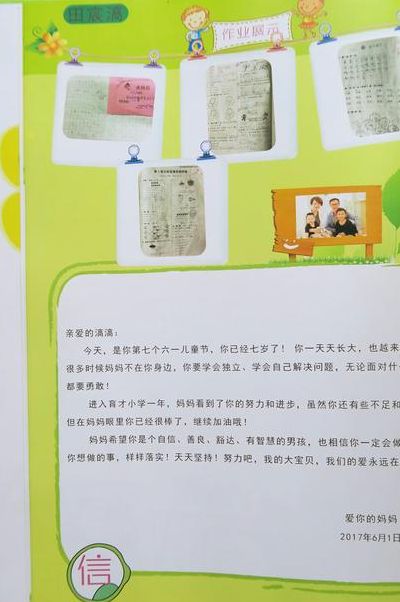 田宸滈
作业展示
亲爱的滈滈：
今天，是你第七个六一儿童节，你已经七岁了！你一天天长大，也越来
很多时候妈妈不在你身边，你要学会独立、学会自己解决问题，无论面对什
都要勇敢！
进入育才小学一年，妈妈看到了你的努力和进步，虽然你还有些不足和
但在妈妈眼里你已经很棒了，继续加油哦！
妈妈希望你是个自信、善良、豁达、有智慧的男孩，也相信你一定会做
你想做的事，样样落实！天天坚持！努力吧，我的大宝贝，我们的爱永远在
爱你的妈妈
2017年6月1日
信